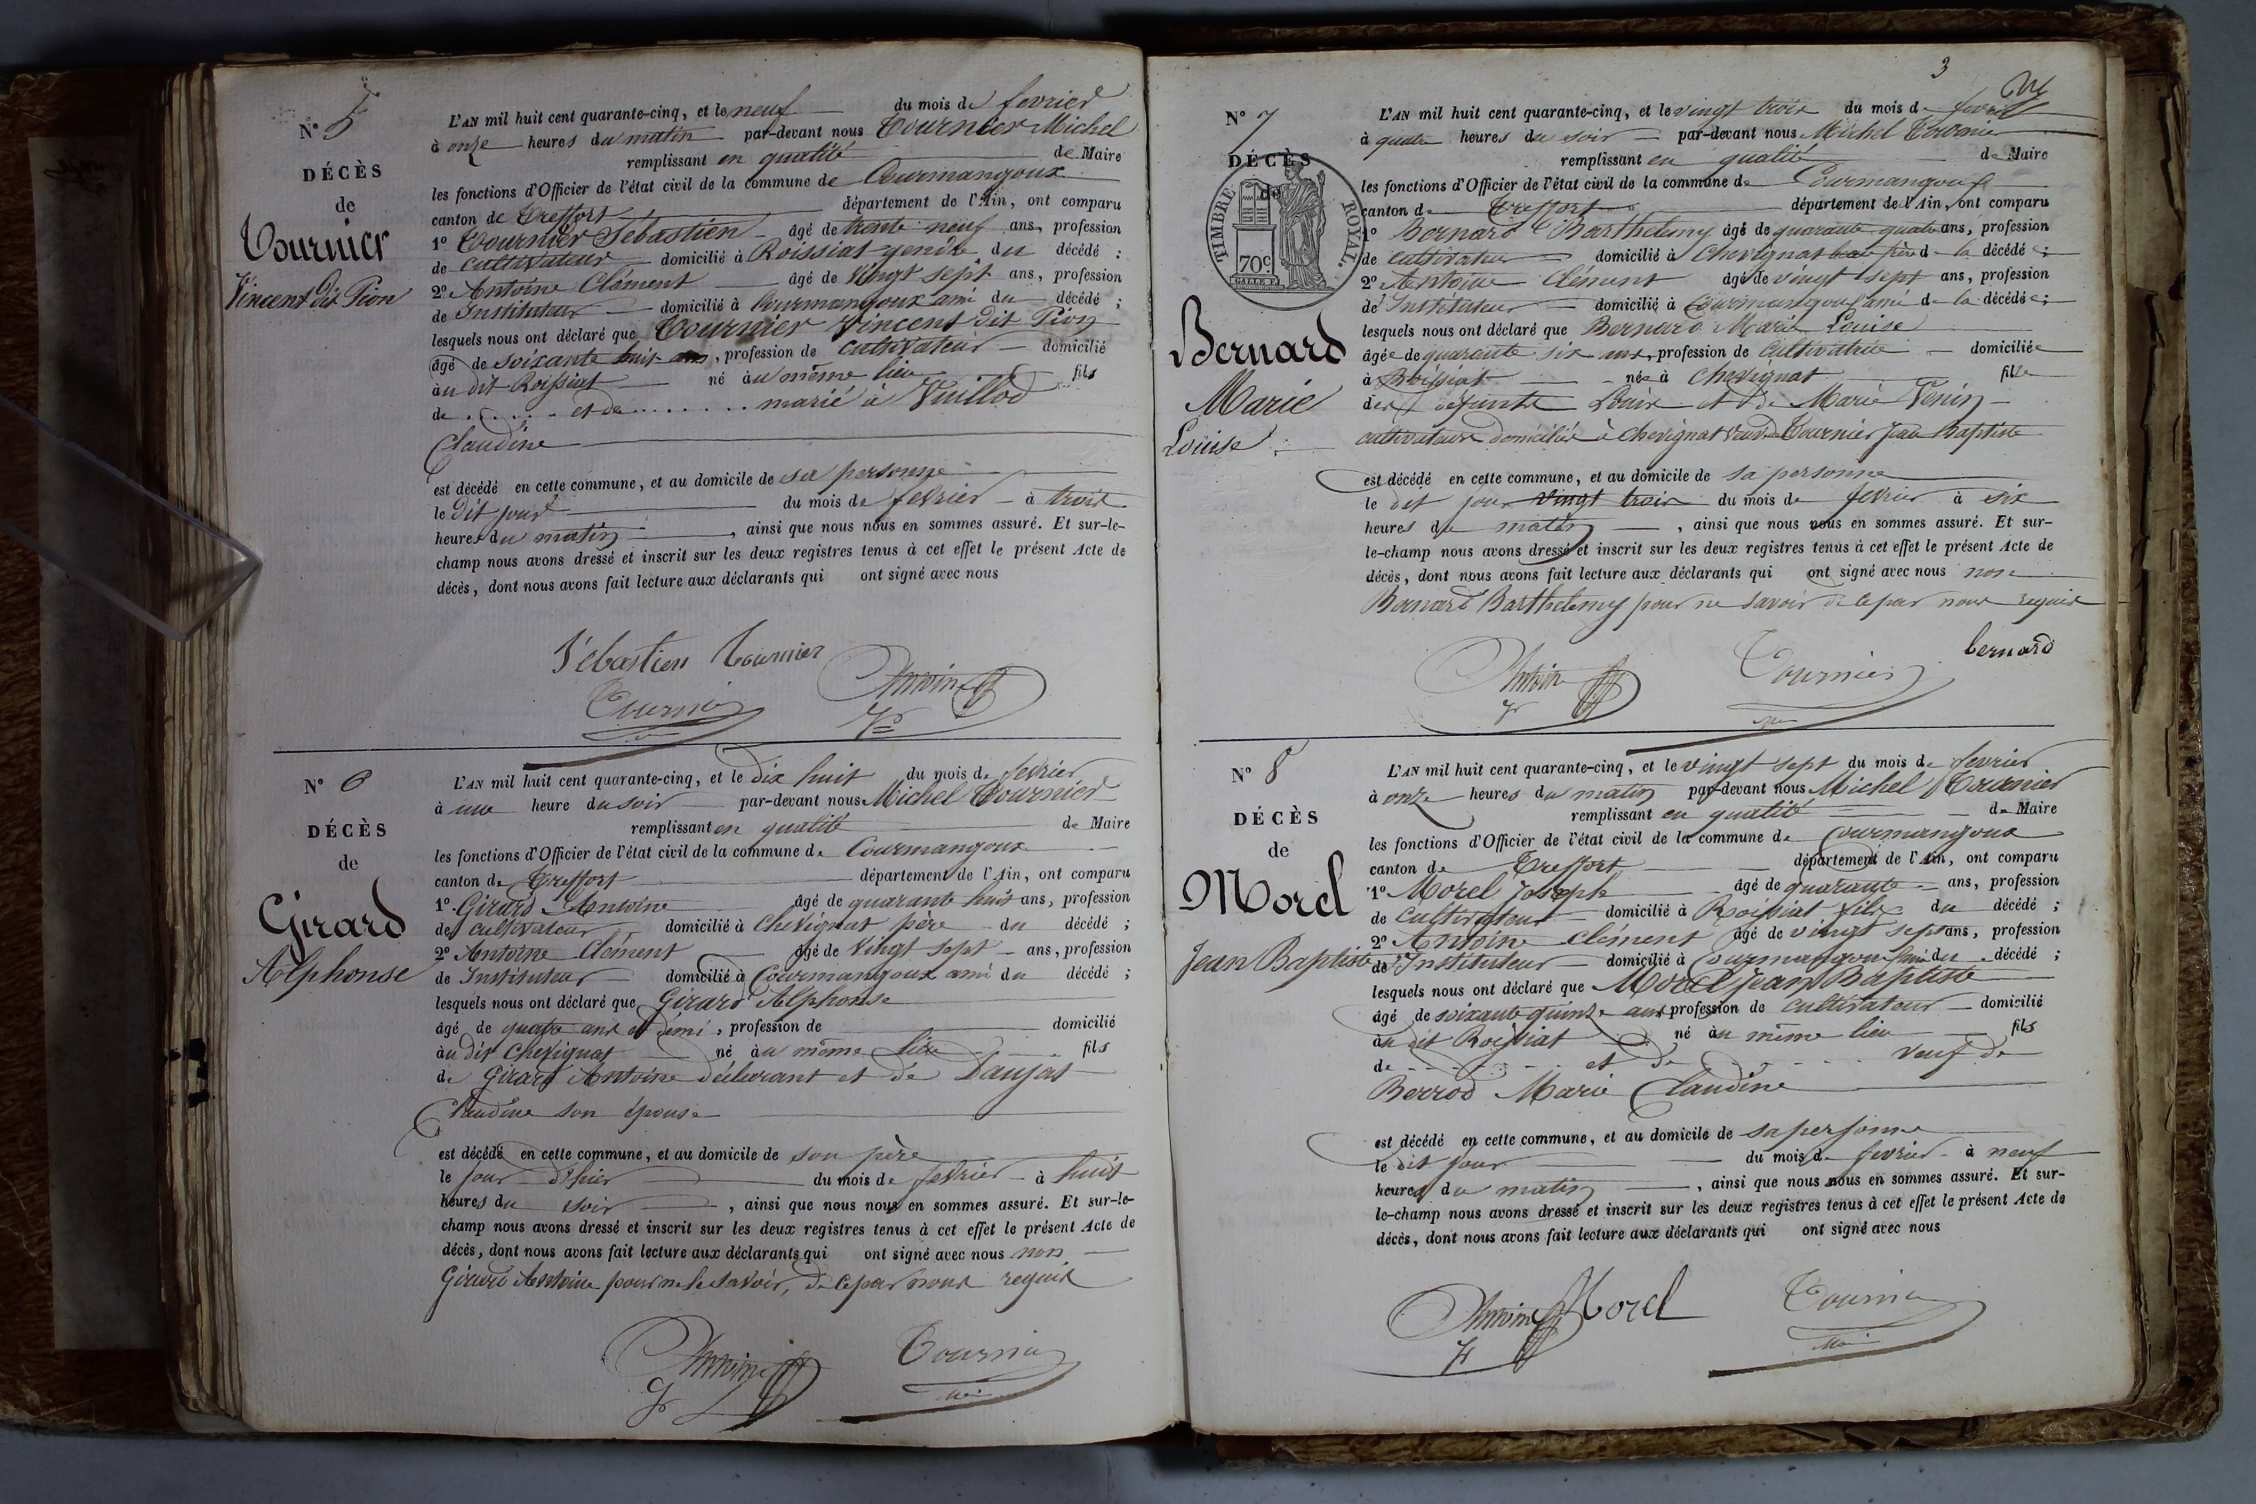 N° 5
DÉCÈS
de
Tournier
Vincent dit Pion
L'AN mil huit cent quarante-cinq, et le neuf du mois de fevrier
à onze heures du matin par-devant nous Tournier Michel
remplissant en qualité de Maire
les fonctions d'Officier de l'état civil de la commune de Courmangoux
canton de Treffort département de l'Ain, ont comparu
1° Tournier Sébastien âgé de trente neuf ans, profession
de cultivateur domicilié à Roissiat gendre du décédé ;
2° Antoine Clément âgé de vingt sept ans, profession
de Instituteur domicilié à Courmangoux ami du décédé ;
lesquels nous ont déclaré que Tournier Vincent dit Pion
âgé de soixante huit ans, profession de cultivateur domicilié
au dit Roissiat né au même lieu fils
de ...... et de ........ marié à Vuillod
Claudine
est décédé en cette commune, et au domicile de sa personne
le dit jour du mois de fevrier à trois
heures du matin, ainsi que nous nous en sommes assuré. Et sur-le-
champ nous avons dressé et inscrit sur les deux registres tenus à cet effet le présent Acte de
décès, dont nous avons fait lecture aux déclarants qui ont signé avec nous
Sébastien Tournier
Tournier Antoine
N° 6
DÉCÈS
de
Girard
Alphonse
L'AN mil huit cent quarante-cinq, et le dix huit du mois de fevrier
à une heure du soir par-devant nous Michel Tournier
remplissant en qualité de Maire
les fonctions d'Officier de l'état civil de la commune de Courmangoux
canton de Treffort département de l'Ain, ont comparu
1° Girard Antoine âgé de quarante huit ans, profession
de cultivateur domicilié à Chevignat père du décédé ;
2° Antoine Clément âgé de vingt sept ans, profession
de Instituteur domicilié à Courmangoux ami du décédé ;
lesquels nous ont déclaré que Girard Alphonse
âgé de quatre ans et demi, profession de domicilié
au dit Chevignat né au même lieu fils
de Girard Antoine déclarant et de Daujat
Claudine son épouse
est décédé en cette commune, et au domicile de son père
le jour d'hier du mois de fevrier à huit
heures du soir, ainsi que nous nous en sommes assuré. Et sur-le-
champ nous avons dressé et inscrit sur les deux registres tenus à cet effet le présent Acte de
décès, dont nous avons fait lecture aux déclarants qui ont signé avec nous non
Girard Antoine pour ne le savoir, de ce par nous requis
Antoine Tournier
3
N° 7
DÉCÈS
de
TIMBRE ROYAL
70c
Bernard
Marie
Louise
L'AN mil huit cent quarante-cinq, et le vingt trois du mois de fevrier
à quatre heures du soir par-devant nous Michel Tournier
remplissant en qualité de Maire
les fonctions d'Officier de l'état civil de la commune de Courmangoux
canton de Treffort département de l'Ain, ont comparu
1° Bernard Barthelemy âgé de quarante quatre ans, profession
de cultivateur domicilié à Chevignat beau frère de la décédée ;
2° Antoine Clément âgé de vingt sept ans, profession
de Instituteur domicilié à Courmangoux ami de la décédée ;
lesquels nous ont déclaré que Bernard Marie Louise
âgée de quarante six ans, profession de cultivatrice domiciliée
à Roissiat née à Chevignat fille
des defunts Louis et de Marie Venin
cultivateurs domiciliés à Chevignat veuve Tournier Jean Baptiste
est décédé en cette commune, et au domicile de sa personne
le dit jour vingt trois du mois de fevrier à six
heures du matin, ainsi que nous nous en sommes assuré. Et sur-
le-champ nous avons dressé et inscrit sur les deux registres tenus à cet effet le présent Acte de
décès, dont nous avons fait lecture aux déclarants qui ont signé avec nous non
Bernard Barthelemy pour ne savoir de ce par nous requis
Antoine Tournier bernard
N° 8
DÉCÈS
de
Morel
Jean Baptiste
L'AN mil huit cent quarante-cinq, et le vingt sept du mois de fevrier
à onze heures du matin par-devant nous Michel Tournier
remplissant en qualité de Maire
les fonctions d'Officier de l'état civil de la commune de Courmangoux
canton de Treffort département de l'Ain, ont comparu
1° Morel Joseph âgé de quarante ans, profession
de cultivateur domicilié à Roissiat fils du décédé ;
2° Antoine Clément âgé de vingt sept ans, profession
de Instituteur domicilié à Courmangoux ami du décédé ;
lesquels nous ont déclaré que Morel Jean Baptiste
âgé de soixante quinze ans profession de cultivateur domicilié
au dit Roissiat né au même lieu fils
de ...... et de ...... veuf de
Berrod Marie Claudine
est décédé en cette commune, et au domicile de sa personne
le dit jour du mois de fevrier à neuf
heures du matin, ainsi que nous nous en sommes assuré. Et sur-
le-champ nous avons dressé et inscrit sur les deux registres tenus à cet effet le présent Acte de
décès, dont nous avons fait lecture aux déclarants qui ont signé avec nous
Antoine Morel Tournier